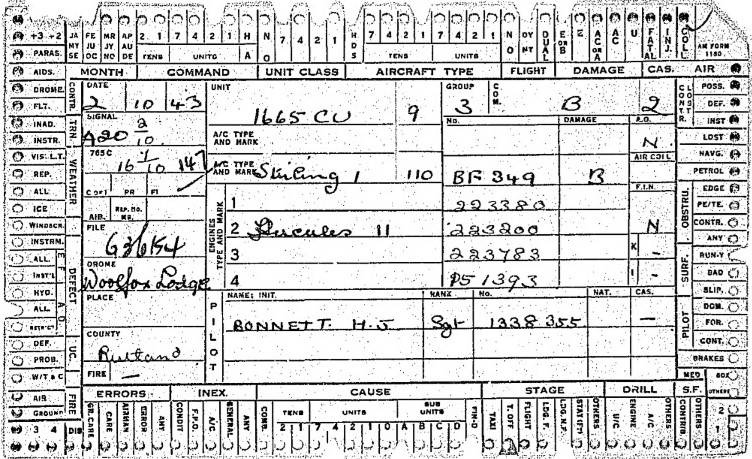 +3 +2 JA MY SE FE JU OC MR JY NO AP AU DE 2 1 7 4 2 1 H A N O 7 4 2 1 H D S 7 4 2 1 7 4 2 1 N O DY NT DUAL E or B E AC or A AC U FATAL INJ. COLL
PARAS. TENS UNITS TENS UNITS AM FORM 1180
AIDS. MONTH COMMAND UNIT CLASS AIRCRAFT TYPE FLIGHT DAMAGE CAS. AIR
DROME. CONTR. DATE UNIT GROUP C. O. M. CONTR. CLOSTR. POSS.
FLT. 2 10 43 1665 CU 9 3 B 2 DEF.
INAD. TRN. SIGNAL No. DAMAGE A.O. INST
INSTR. A20 2/10 A/C TYPE AND MARK N LOST
VIS: L.T. WEATHER 765C AIR COLL NAVG.
REP. 16 1/10 147 A/C TYPE AND MARK Stirling 1 110 BF 349 B PETROL
ALL PR FI F.I.N. OBSTRU. EDGE
ICE AIB. REP. NO. ENGINES TYPE AND MARK 1 223380 PE/TE.
WINDSCR. FILE 2 Hercules 11 223200 N CONTR.
INSTRM. DEFECT G36154 3 223783 K - ANY
ALL. DROME 4 P51393 I - SURF. RUN-Y
INST'L Woolfox Lodge BAD
HYD. PLACE PILOT NAME: INIT. RANK. No. NAT. CAS. SLIP.
ALL. BONNETT. H.J Sgt 1338355 - PILOT DOM.
COUNTY FOR.
DEF. UC. Rutland CONT.
PROB. FIRE - BRAKES
W/T & C MED BOX
AIR FIRE ERRORS INEX. CAUSE STAGE DRILL S.F. OTHERS
GROUND GR. CARE CARE AIRMAN ERROR ANY CONDIT F.P.O. A/C GENERAL ANY COMB. TENS UNITS SUB UNITS FIN-D TAXI T. OFF FLIGHT LDG. F. LDG. N.F. STAT'RY OTHERS U/C ENGINE A/C OTHERS CONTRIB OTHERS 2
3 4 DIS 2 1 7 4 2 1 0 A B C D 1